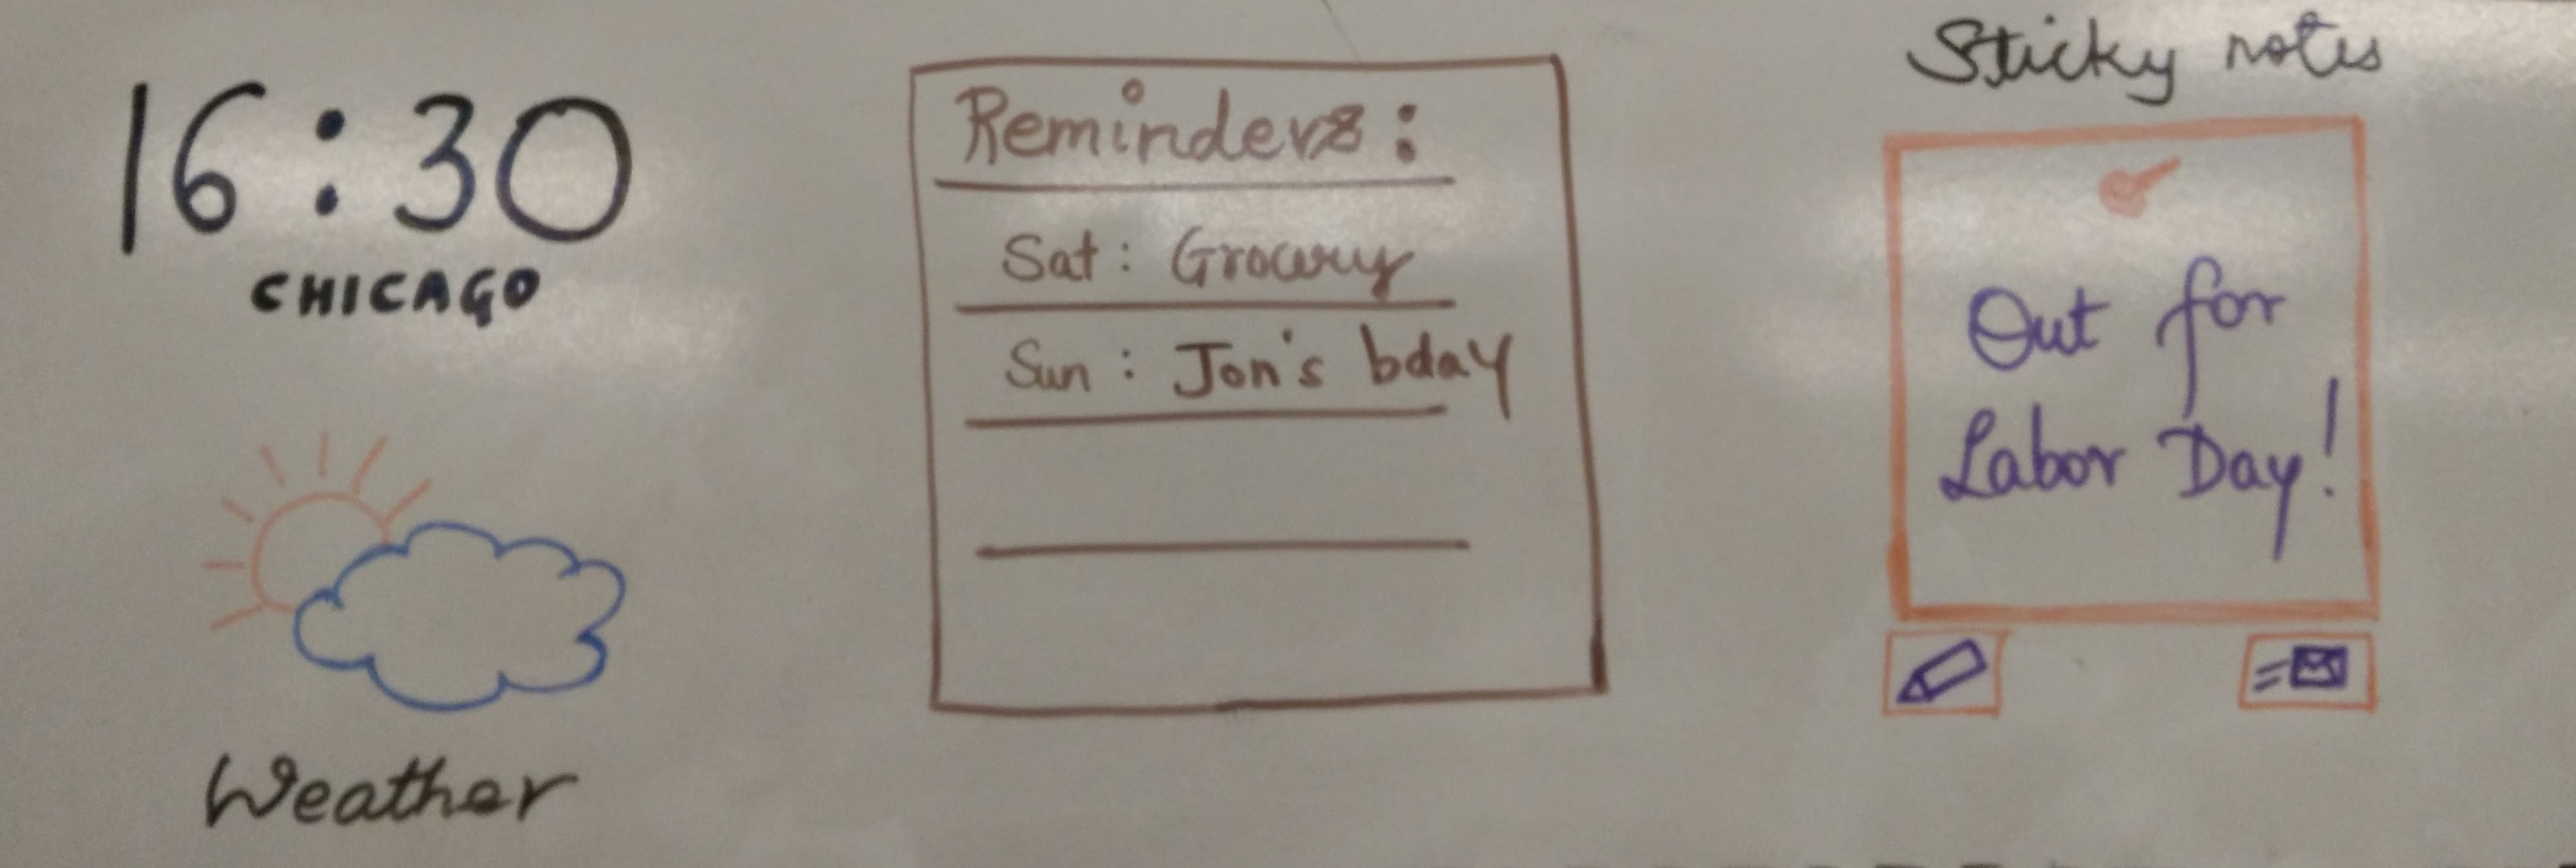 16:30
CHICAGO
Weather
Reminders:
Sat: Grocery
Sun: Jon's bday
Sticky notes
Out for
Labor Day!